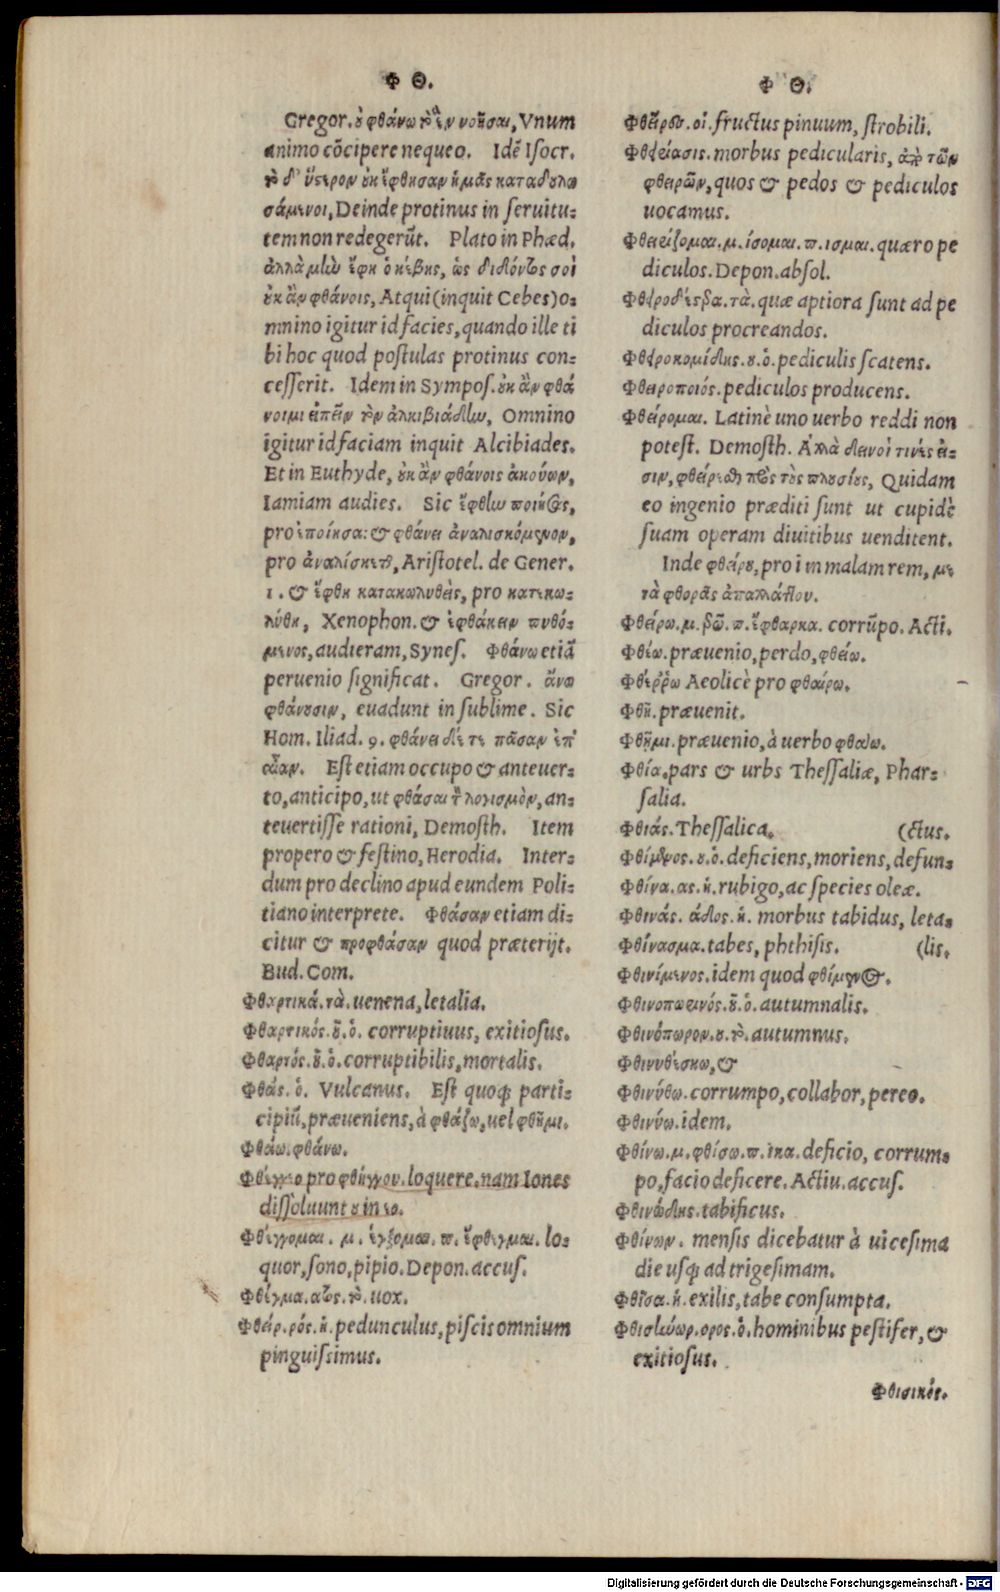 Φ Θ.
Gregor. ȣ φθάνω τὸ ἓν νοῆσαι, Vnum
animo cõcipere nequeo. Idẽ Isocr.
τὸ δ' ὕστερον ȣκ ἔφθησαν ἡμᾶς καταδȣλω
σάμενοι, Deinde protinus in seruitu=
tem non redegerũt. Plato in Phæd.
ἀλλὰ μὴν ἔφη ὁ κέβης, ὡς διδόντος σοὶ
ȣκ ἂν φθάνοις, Atqui (inquit Cebes) o=
mnino igitur id facies, quando ille ti
bi hoc quod postulas protinus con=
cesserit. Idem in Sympos. ȣκ ἂν φθά
νοιμι εἰπεῖν τὸν ἀλκιβιάδην, Omnino
igitur id faciam inquit Alcibiades.
Et in Euthyde, ȣκ ἂν φθάνοις ἀκούων,
Iamiam audies. Sic ἔφθην ποιήσας,
pro ἐποίησα: & φθάνει ἀναλισκόμενον,
pro ἀναλίσκεται, Aristotel. de Gener.
1. & ἔφθη κατακωλυθεὶς, pro κατεκω=
λύθη, Xenophon. & ἐφθάκειν πυθό=
μενος, audieram, Synes. Φθάνω etiã
peruenio significat. Gregor. ἄνω
φθάνȣσιν, euadunt in sublime. Sic
Hom. Iliad. 9. φθάνει δέ τε πᾶσαν ἐπ'
αἶαν. Est etiam occupo & anteuer=
to, anticipo, ut φθάσαι τ̀ λογισμὸν, an=
teuertisse rationi, Demosth. Item
propero & festino, Herodia. Inter=
dum pro declino apud eundem Poli=
tiano interprete. Φθάσαν etiam di=
citur & προφθάσαν quod præterijt.
Bud. Com.
Φθαρτικά. τὰ. uenena, letalia.
Φθαρτικός. ȣ͂. ὁ. corruptiuus, exitiosus.
Φθαρτός. ȣ͂. ὁ. corruptibilis, mortalis.
Φθάς. ὁ. Vulcanus. Est quoq; parti=
cipiũ, præueniens, à φθάζω, uel φθῆμι.
Φθάω. φθάνω.
Φθέγγεο pro φθέγγου. loquere. nam Iones
dissoluunt ȣ in εο.
Φθέγγομαι. μ. έγξομαι. π. ἔφθεγμαι. lo=
quor, sono, pipio. Depon. accus.
Φθέγμα. ατος. τὸ. uox.
Φθείρ. ρός. ἡ. pedunculus, piscis omnium
pinguissimus.
Φ Θ.
Φθεῖρες. οἱ. fructus pinuum, strobili.
Φθειρίασις. morbus pedicularis, ἀπὸ τῶν
φθειρῶν, quos & pedos & pediculos
uocamus.
Φθειρίζομαι. μ. ίσομαι. π. ισμαι. quæro pe
diculos. Depon. absol.
quæ aptiora sunt ad pe
diculos procreandos.
Φθειροκομίδης. ȣ. ὁ. pediculis scatens.
Φθειροποιός. pediculos producens.
Φθείρομαι. Latinè uno uerbo reddi non
potest. Demosth. Ἀλλὰ δεινοί τινές εἰ=
σιν, φθείρεσθαι πρὸς τȣ̀ς πλȣσίȣς, Quidam
eo ingenio præditi sunt ut cupidè
suam operam diuitibus uenditent.
Inde φθείρȣ, pro i in malam rem, με
τὰ φθορᾶς ἀπαλλάττου.
Φθείρω. μ. ρῶ. π. ἔφθαρκα. corrũpo. Acti.
Φθέω. præuenio, perdo, φθείω.
Φθέρρω Aeolicè pro φθαίρω.
Φθῇ. præuenit.
Φθῆμι. præuenio, à uerbo φθαίω.
Φθία. pars & urbs Thessaliæ, Phar=
salia.
Φθιάς. Thessalica. (ctus.
Φθίμενος. ȣ. ὁ. deficiens, moriens, defun=
Φθίνα. ας. ἡ. rubigo, ac species oleæ.
Φθινάς. άδος. ἡ. morbus tabidus, leta=
Φθίνασμα. tabes, phthisis. (lis.
Φθινίμενος. idem quod φθίμενος.
Φθινοπωρινός. ȣ͂. ὁ. autumnalis.
Φθινόπωρον. ȣ. τὸ. autumnus.
Φθινυθέσκω, &
Φθινύθω. corrumpo, collabor, pereo.
Φθινύω. idem.
Φθίνω. μ. φθίσω. π. ικα. deficio, corrum=
po, facio deficere. Actiu. accus.
Φθινώδης. tabificus.
Φθίνων. mensis dicebatur à uicesima
die usq; ad trigesimam.
Φθῖσα. ἡ. exilis, tabe consumpta.
Φθισήνωρ. ορος. ὁ. hominibus pestifer, &
exitiosus.
Φθισικός.
Digitalisierung gefördert durch die Deutsche Forschungsgemeinschaft - DFG